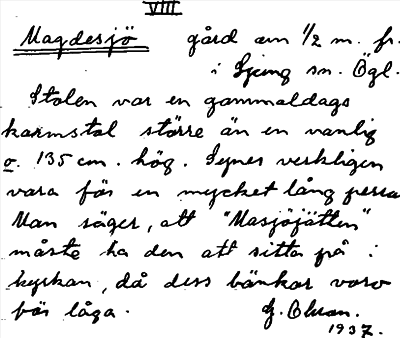 VIII
Magdesjö gård am 1/2 m. fr.
i Ljung sn. Ögl.
Stolen var en gammaldags
karmstol större än en vanlig
o. 135 cm. hög. Synes verkligen
vara för en mycket lång perso
Man säger, att "Masjöjätten"
måste ha den att sitta på i
kyrkan, då dess bänkar voro
för låga. G. Olsson.
1937.